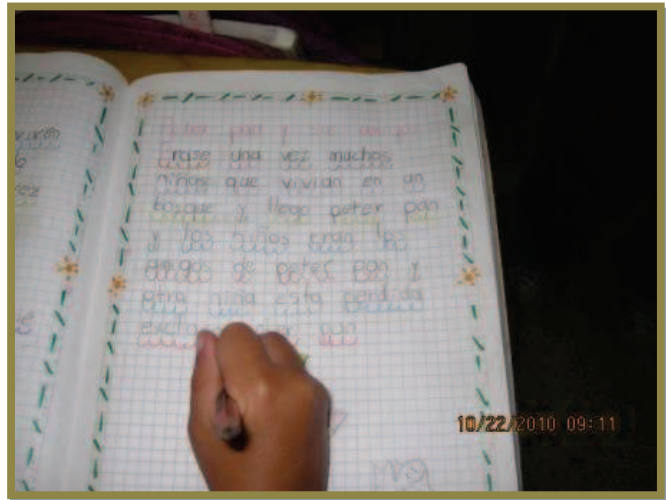 viron
6
ez
Peter pan y sus amigos
Erase una vez muchos
niños que vivian en un
bosque y llego peter pan
y los niños eran los
amigos de peter pan y
otra niña esta perdida
pan
10/22/2010 09:11